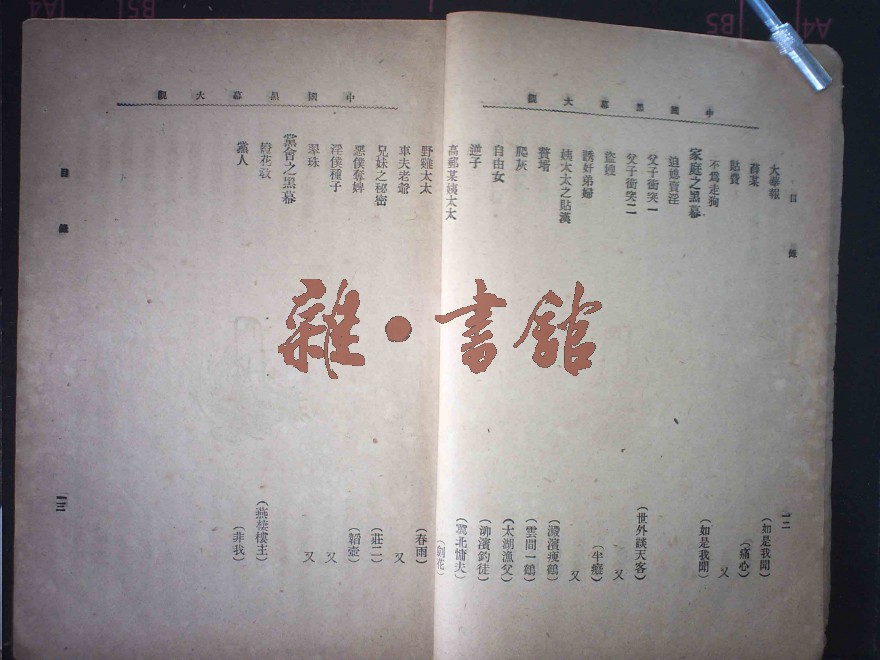 中國黑幕大觀
目錄
十二
大華報
(如是我聞)
薛某
(痛心)
貼費
又
不為走狗
(如是我聞)
家庭之黑幕
迫媳賣淫
父子衝突一
(世外談天客)
父子衝突二
又
盜嫂
(半癡)
誘奸弟婦
又
姨太太之貼漢
瘦鶴)
賣
(雲間一鶴)
爬灰
(太湖漁父)
自由女
(泖濱釣徒)
逆子
(冀北傭夫)
高郵某姨太太
(劍花)
中國黑幕大觀
野雞太太
(春雨)
車夫老爺
又
兄妹之秘密
(莊二)
惡僕奪婢
(韜壺)
淫僕種子
又
翠珠
又
黨會之黑幕
燈花教
(燕棲樓主)
黨人
(非我)
目錄
十三
雜·書館